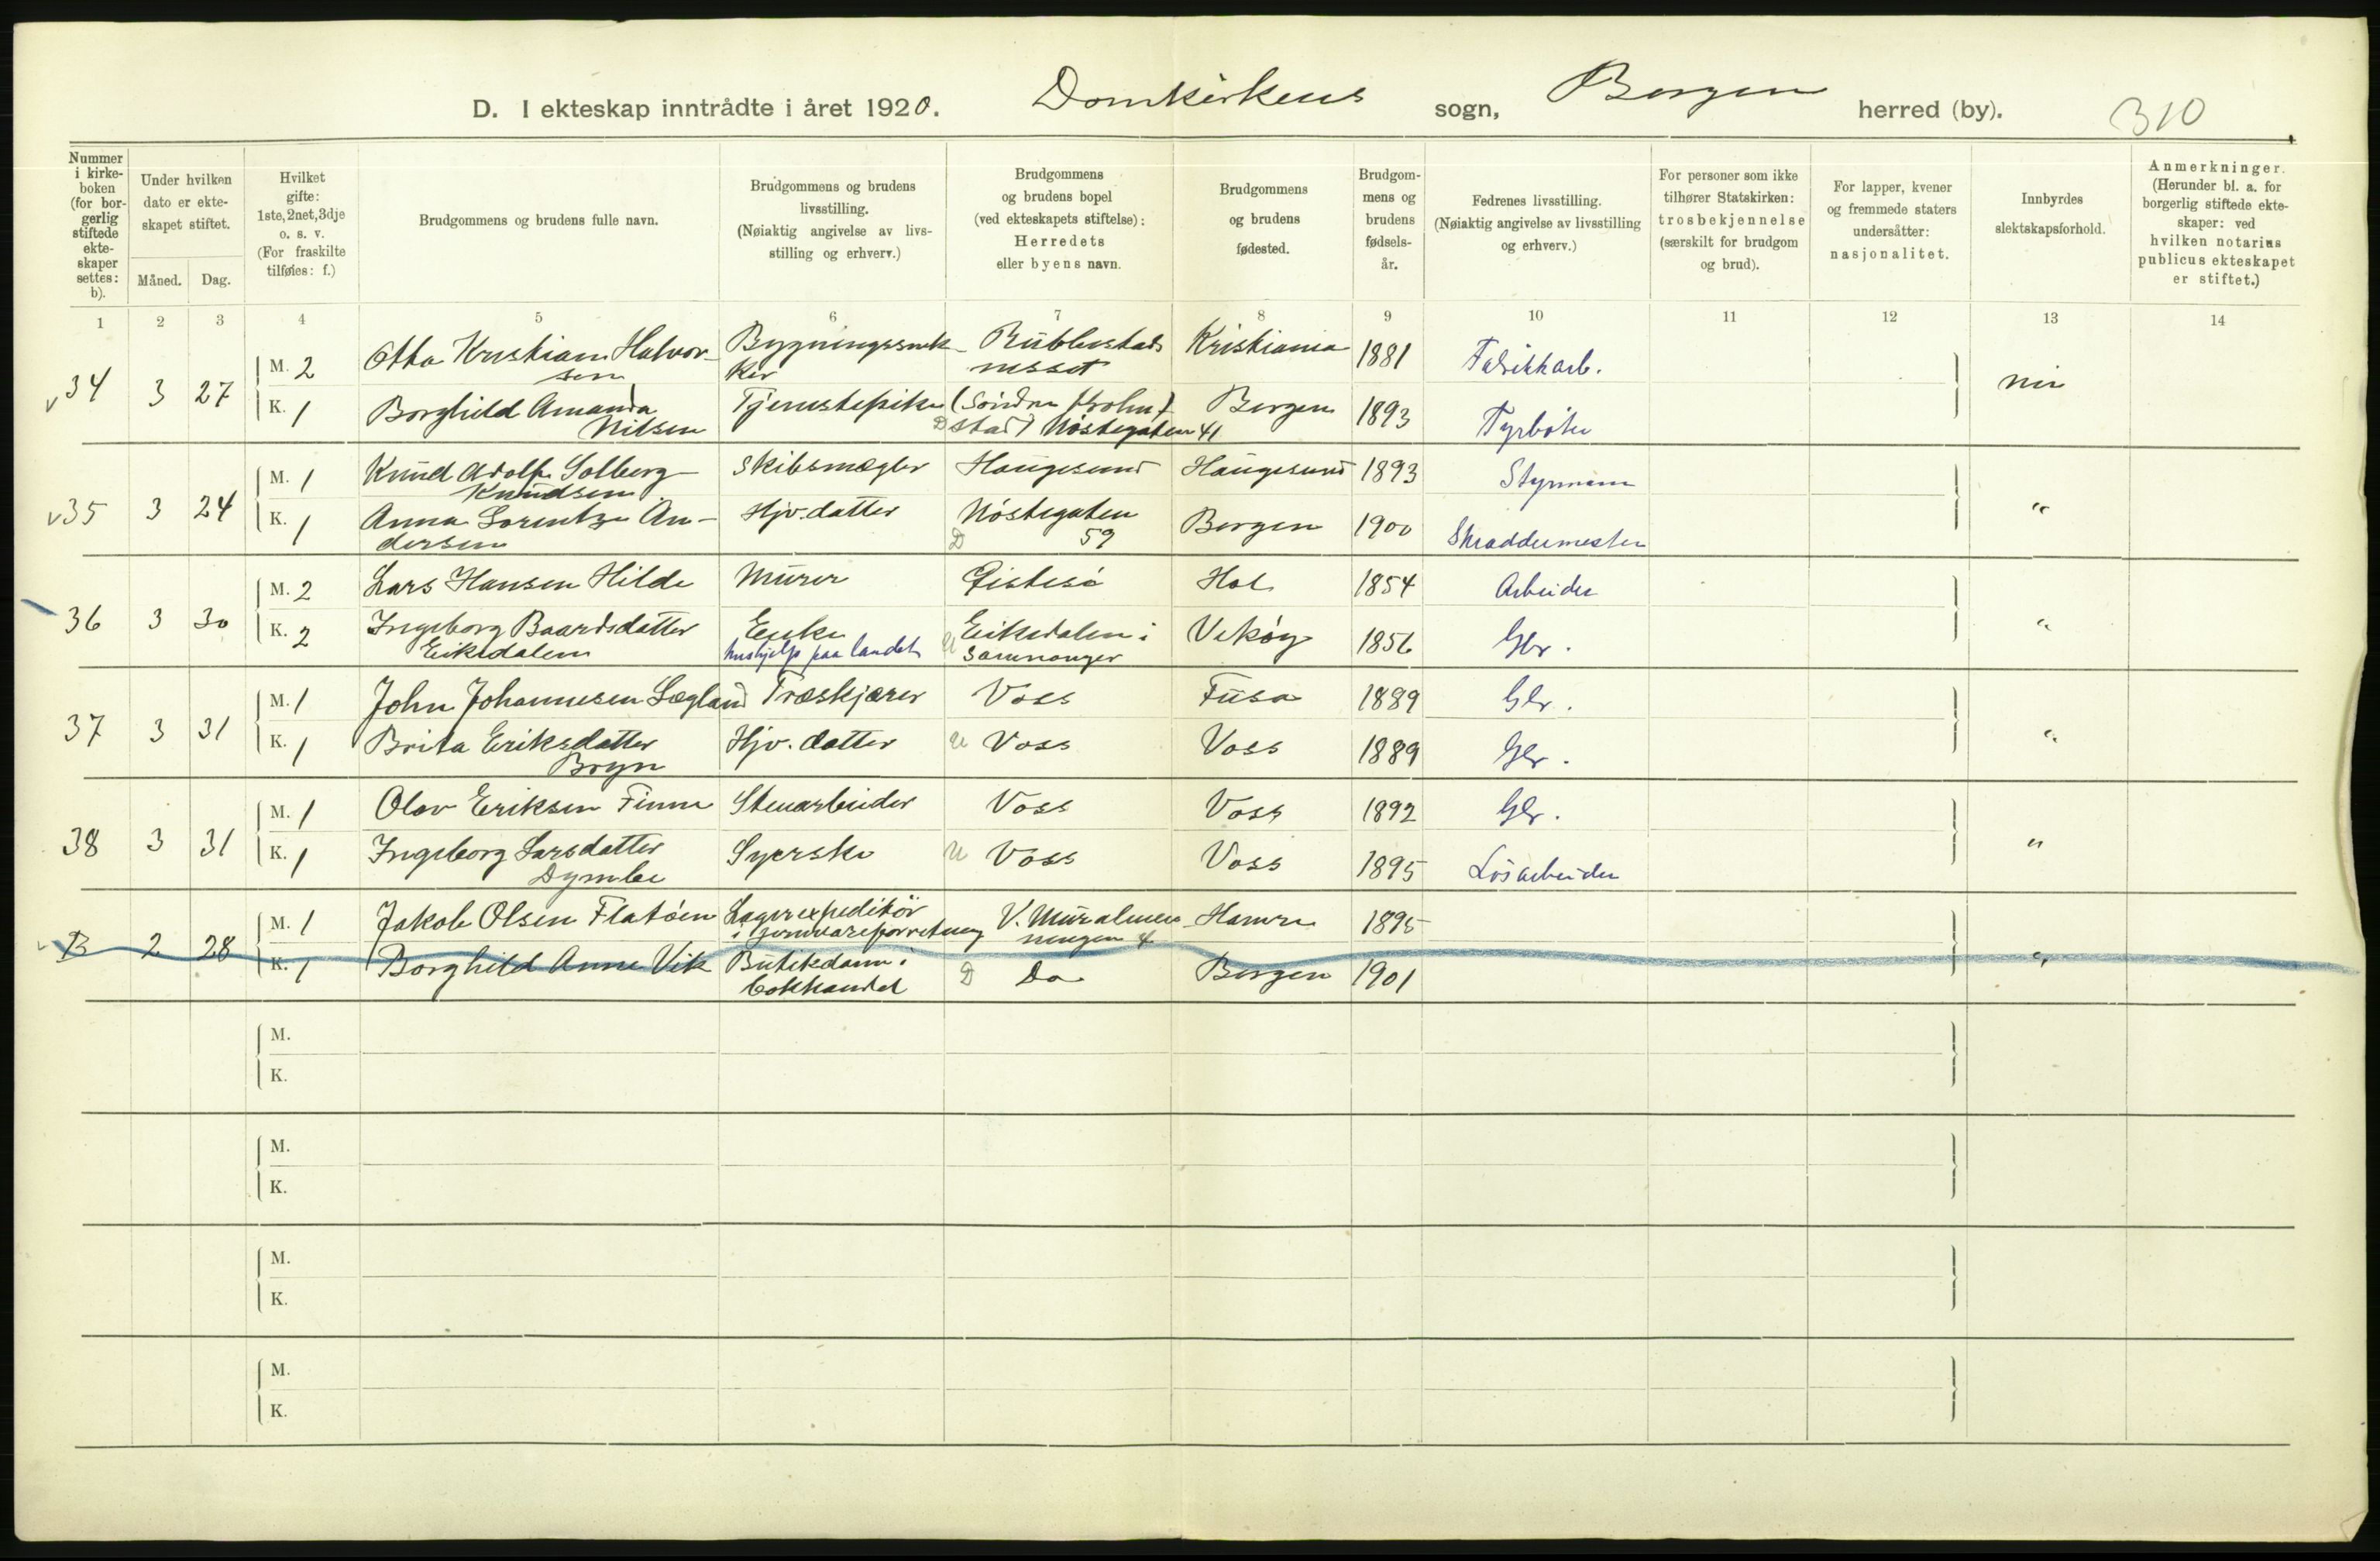 D. I ekteskap inntrådte i året 1920. Domkirkens sogn, Bergen herred (by). 310
Nummer i kirkeboken (for borgerlig stiftede ekteskaper settes: b).
Under hvilken dato er ekteskapet stiftet.
Måned. Dag.
Hvilket gifte: 1ste, 2net, 3dje o. s. v. (For fraskilte tilføies: f.)
Brudgommens og brudens fulle navn.
Brudgommens og brudens livsstilling. (Nøiaktig angivelse av livsstilling og erhverv.)
Brudgommens og brudens bopel (ved ekteskapets stiftelse): Herredets eller byens navn.
Brudgommens og brudens fødested.
Brudgommens og brudens fødselsår.
Fedrenes livsstilling. (Nøiaktig angivelse av livsstilling og erhverv.)
For personer som ikke tilhører Statskirken: trosbekjennelse (særskilt for brudgom og brud).
For lapper, kvener og fremmede staters undersåtter: nasjonalitet.
Innbyrdes slektskapsforhold.
Anmerkninger. (Herunder bl. a. for borgerlig stiftede ekteskaper: ved hvilken notarius publicus ekteskapet er stiftet.)
1 2 3 4 5 6 7 8 9 10 11 12 13 14
34 3 27 M. 2 Otto Kristian Halvorsen Bygningssnekker Kristiania 1881 Fabrikkarb. nei
K. 1 Borghild Amanda Nilsen Tjenestepike Nöstegaten 41 Bergen 1893 Fyrböter
35 3 24 M. 1 Knud Adolf Solberg Knudsen Skibsmægler Haugesund Haugesund 1893 Styrmann "
K. 1 Anna Lorentze Andersen Hjv. datter Nöstegaten 59 D Bergen 1900 Skraddermester
36 3 30 M. 2 Lars Hansen Hilde Murer Östesö Hol 1854 Arbeider "
K. 2 Ingeborg Baardsdatter Eikedalen Enke hushjelp paa landet U Eikedalen i Samnanger Vikøy 1856 Gbr.
37 3 31 M. 1 John Johannesen Lægland Træskjærer Voss Fusa 1889 Gbr. "
K. 1 Brita Eriksdatter Bryn Hjv. datter U Voss Voss 1889 Gbr.
38 3 31 M. 1 Olav Eriksen Finne Stenarbeider Voss Voss 1892 Gbr. "
K. 1 Ingeborg Larsdatter Dymbe Syerske U Voss Voss 1895 Lösarbeider
B 2 28 M. 1 Jakob Olsen Flatöen Lagerexpeditör i jernvareforretning V. Muralmenningen 4 Hamre 1895 "
K. 1 Borghild Anne Vik Butikdame i bokhandel D Do Bergen 1901
M.
K.
M.
K.
M.
K.
M.
K.